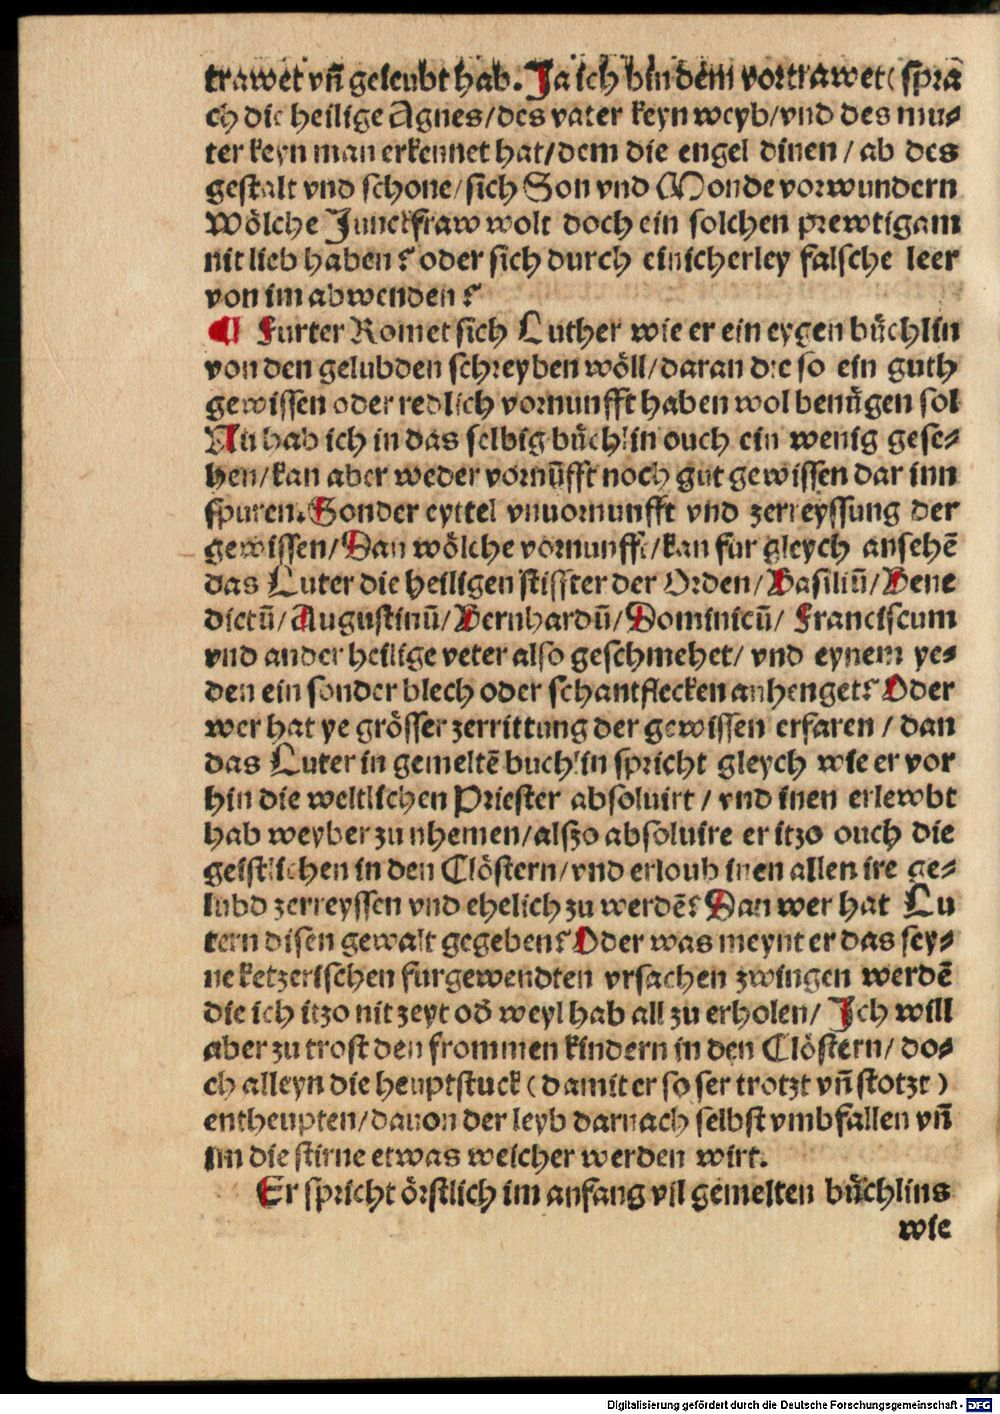 trawet vñ geleubt hab. Ja ich bin dem vortrawet (spra
ch die heilige Agnes/des vater keyn weyb/vnd des mu⸗
ter keyn man erkennet hat/dem die engel dinen/ab des
gestalt vnd schone/sich Son vnd Monde vorwundern
Wölche Junckfraw wolt doch ein solchen prewtigam
nit lieb haben? oder sich durch einicherley falsche leer
von im abwenden?
¶ Furter Romet sich Luther wie er ein eygen bůchlin
von den gelubden schreyben wöll/daran die so ein guth
gewissen oder redlich vornunfft haben wol benůgen sol
Nu hab ich in das selbig bůchlin ouch ein wenig gese⸗
hen/kan aber weder vornůfft noch gut gewissen dar inn
spuren. Sonder eyttel vnuornunfft vnd zerreyssung der
gewissen/Dan wölche vornunfft/kan fur gleych ansehē
das Luter die heiligen stiffter der Orden/Basiliū/Bene
dictū/Augustinū/Bernhardū/Dominicū/Franciscum
vnd ander heilige veter also geschmehet/vnd eynem ye⸗
den ein sonder blech oder schantflecken anhenget? Oder
wer hat ye grösser zerrittung der gewissen erfaren/dan
das Luter in gemeltē buchlin spricht gleych wie er vor
hin die weltlichen Priester absoluirt/vnd inen erlewbt
hab weyber zu nhemen/alßo absoluire er itzo ouch die
geistlichen in den Clöstern/vnd erloub inen allen ire ge⸗
lubd zerreyssen vnd ehelich zu werdē? Dan wer hat Lu
tern disen gewalt gegeben? Oder was meynt er das sey⸗
ne ketzerischen furgewendten vrsachen zwingen werdē
die ich itzo nit zeyt od weyl hab all zu erholen/Ich will
aber zu trost den frommen kindern in den Clöstern/do⸗
ch alleyn die heuptstuck (damit er so ser trotzt vñ stotzt)
entheupten/dauon der leyb darnach selbst vmbfallen vñ
im die stirne etwas weicher werden wirt.
Er spricht örstlich im anfang vil gemelten bůchlins
wie
Digitalisierung gefördert durch die Deutsche Forschungsgemeinschaft - DFG